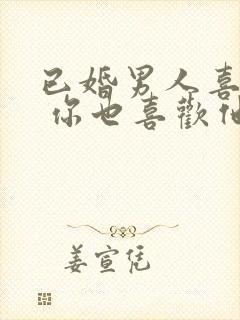 已婚男人喜
你也喜歡他
姜宣凭